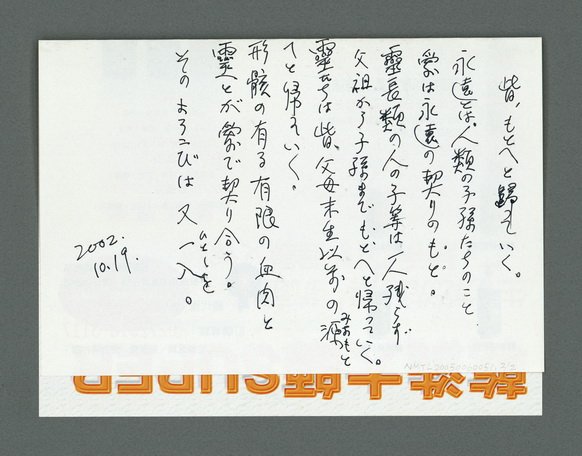 皆、もとへと歸えていく。
永遠とは、人類の子孫たちのこと
愛は永遠の契りのもと。
靈長類の人の子等は一人残らず
父祖から子孫までもとへと帰っていく。
靈たちは皆、父母未生以前の源
みなもと
へと帰えていく。
形骸の有る有限の血肉と
靈とが愛で契り合う。
そのよろこびは又一入。
ひとしを
2002.
10.19.